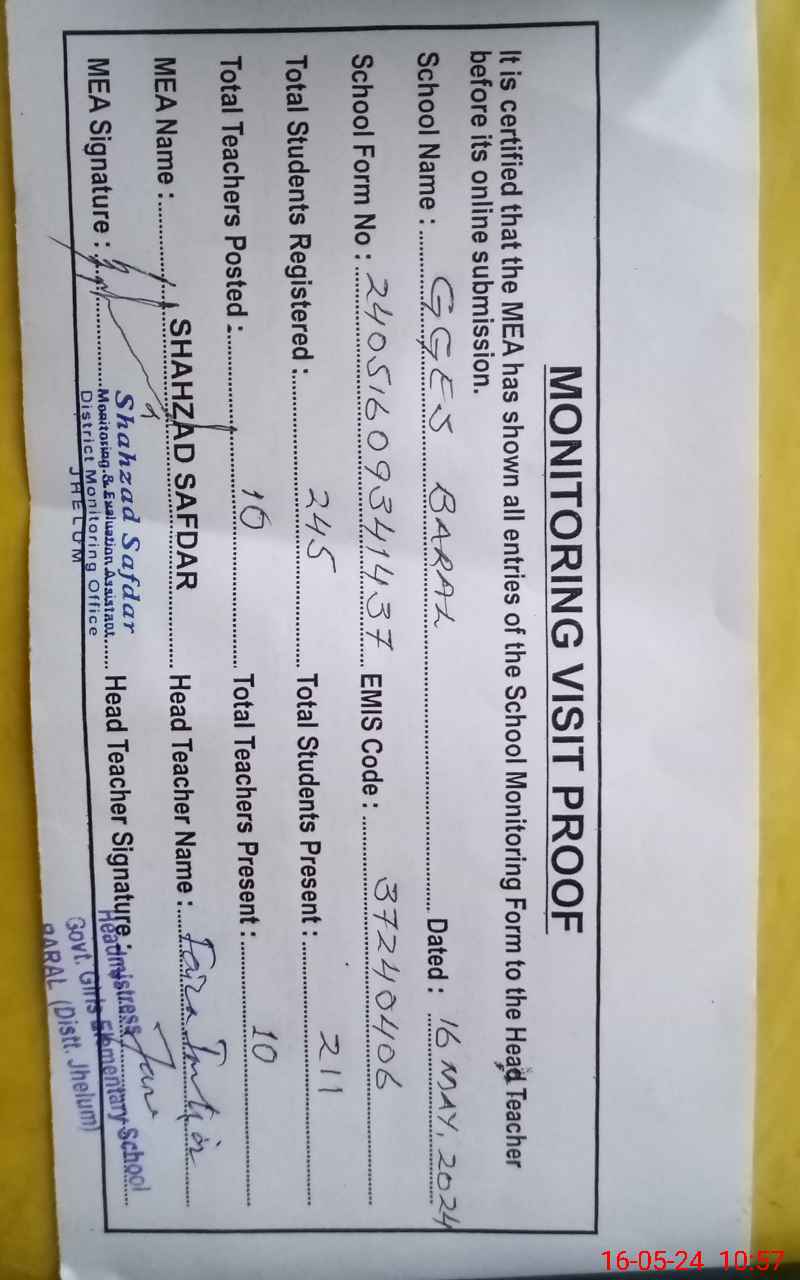 MONITORING VISIT PROOF
It is certified that the MEA has shown all entries of the School Monitoring Form to the Head Teacher
before its online submission.
School Name : GGES BARAL Dated : 16 MAY, 2024
School Form No : 24051609341437 EMIS Code : 37240406
Total Students Registered : 245 Total Students Present : 211
Total Teachers Posted : 10 Total Teachers Present : 10
MEA Name : SHAHZAD SAFDAR Head Teacher Name :
MEA Signature : Head Teacher Signature :
Shahzad Safdar
Monitoring & Evaluation Assistant
District Monitoring Office
JHELUM
Headmistress
Govt. Girls Elementary School
BARAL (Distt. Jhelum)
16-05-24 10:57